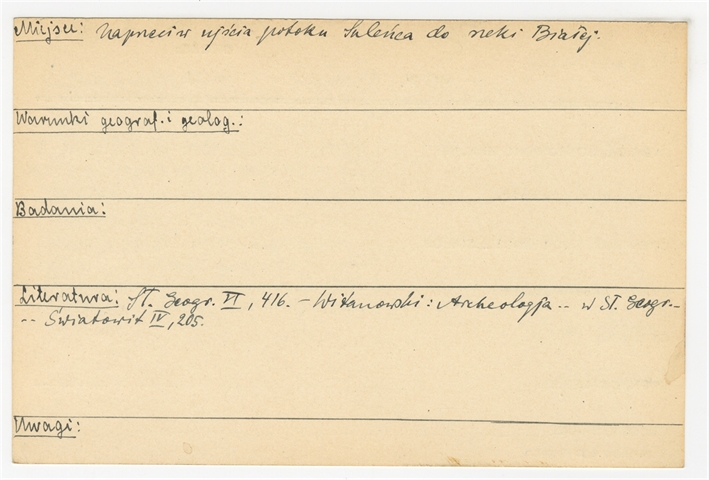 Miejsce: Naprzeciw ujścia potoku Saleńca do rzeki Białej.
Warunki geograf. i geolog.:
Badania:
Literatura: Sł. Geogr. VI, 416. – Witanowski: Archeologja .. w Sł. Geogr. –
-- Światowit IV, 205.
Uwagi: